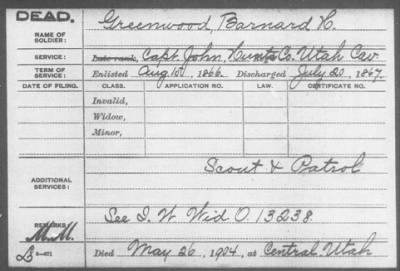 DEAD.
NAME OF SOLDIER: Greenwood, Barnard H.
SERVICE: Late rank, Capt. John, Hunts Co. Utah Cav
TERM OF SERVICE: Enlisted Aug 1st, 1866. Discharged July 20, 1867.
DATE OF FILING. CLASS. APPLICATION NO. LAW. CERTIFICATE NO.
Invalid,
Widow,
Minor,
ADDITIONAL SERVICES: Scout & Patrol
See I. W. Wid O. 13238
REMARKS:
M.M.
3-471
Died May 26, 1904, at Central Utah